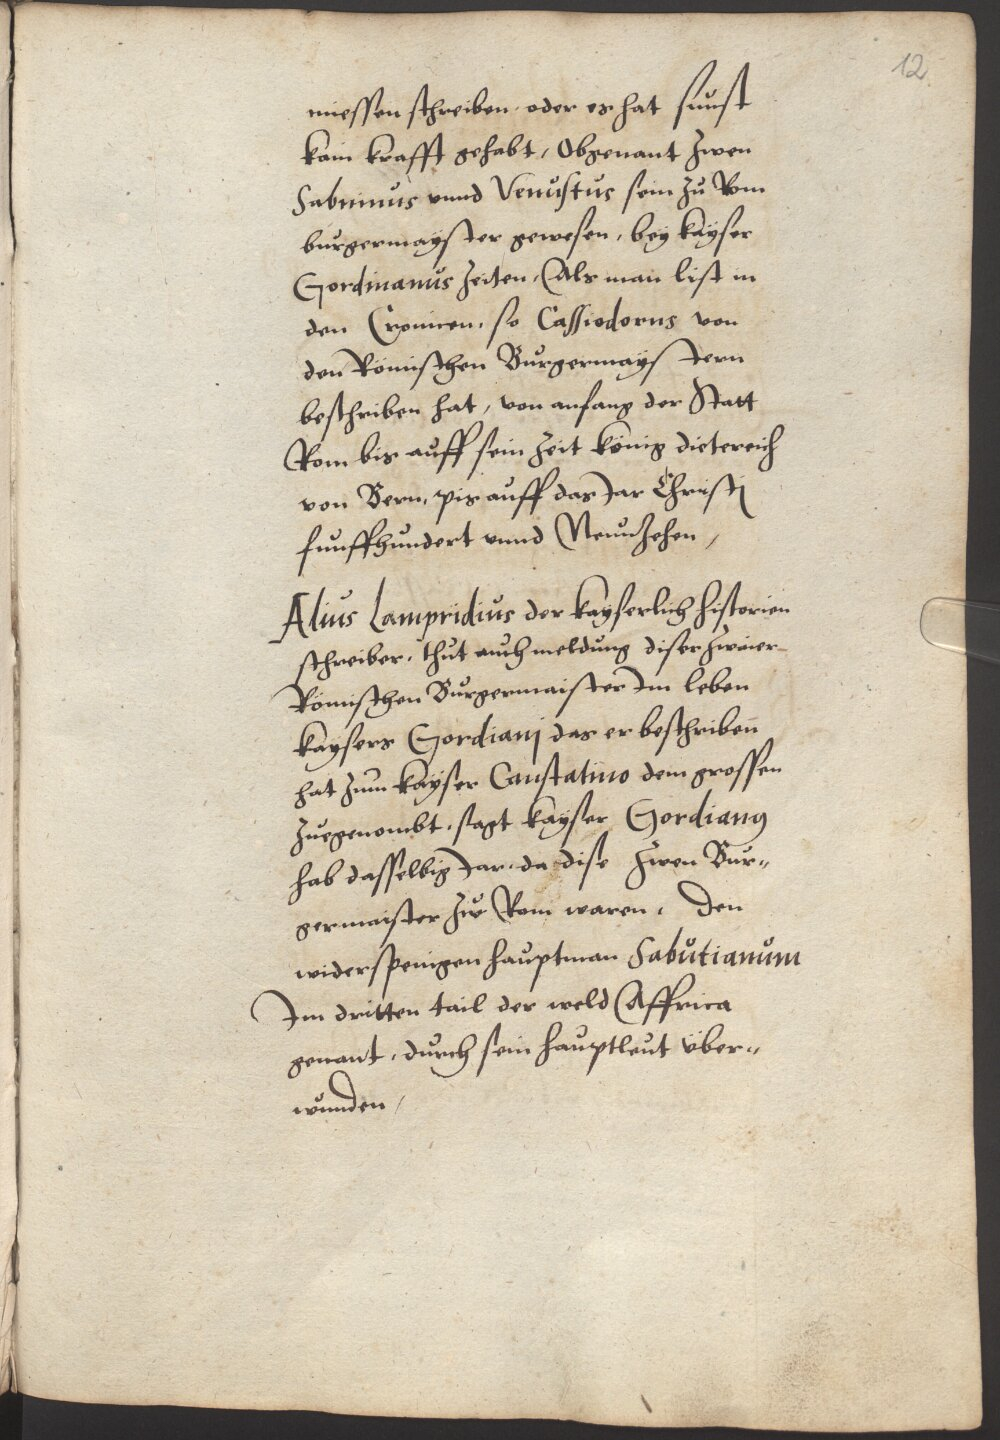 12
miessen schreiben oder es hat sunst
kain krafft gehabt, Obgenant zwen
Sabninus vnnd Venustus sein zu Rom
burgermayster gewesen, bey kayser
Gordinanus zeiten, Als man list in
den Cronicen, so Cassiodorus von
den Römischen Burgermaystern
beschriben hat, von anfang der Statt
Rom bis auff sein zeit könig dietereich
von Bern, pis auff das Jar Christj
funffhundert vnnd Neunzehen,
Alius Lampridius der kayserlich historien
schreiber, thut auch meldung diser zwaier
Römischen Burgermaister Im leben
kaysers Gordianj das er beschriben
hat zum kayser Canstatino dem grossen
zuegenombt, sagt kayser Gordianus
hab dasselbig Jar, da dise zwen Bur„
germaister zw Rom waren, den
widerspenigen hauptman Sabutianum
Im dritten tail der weld Affrica
genant, durch sein hauptleut vber„
wunden,